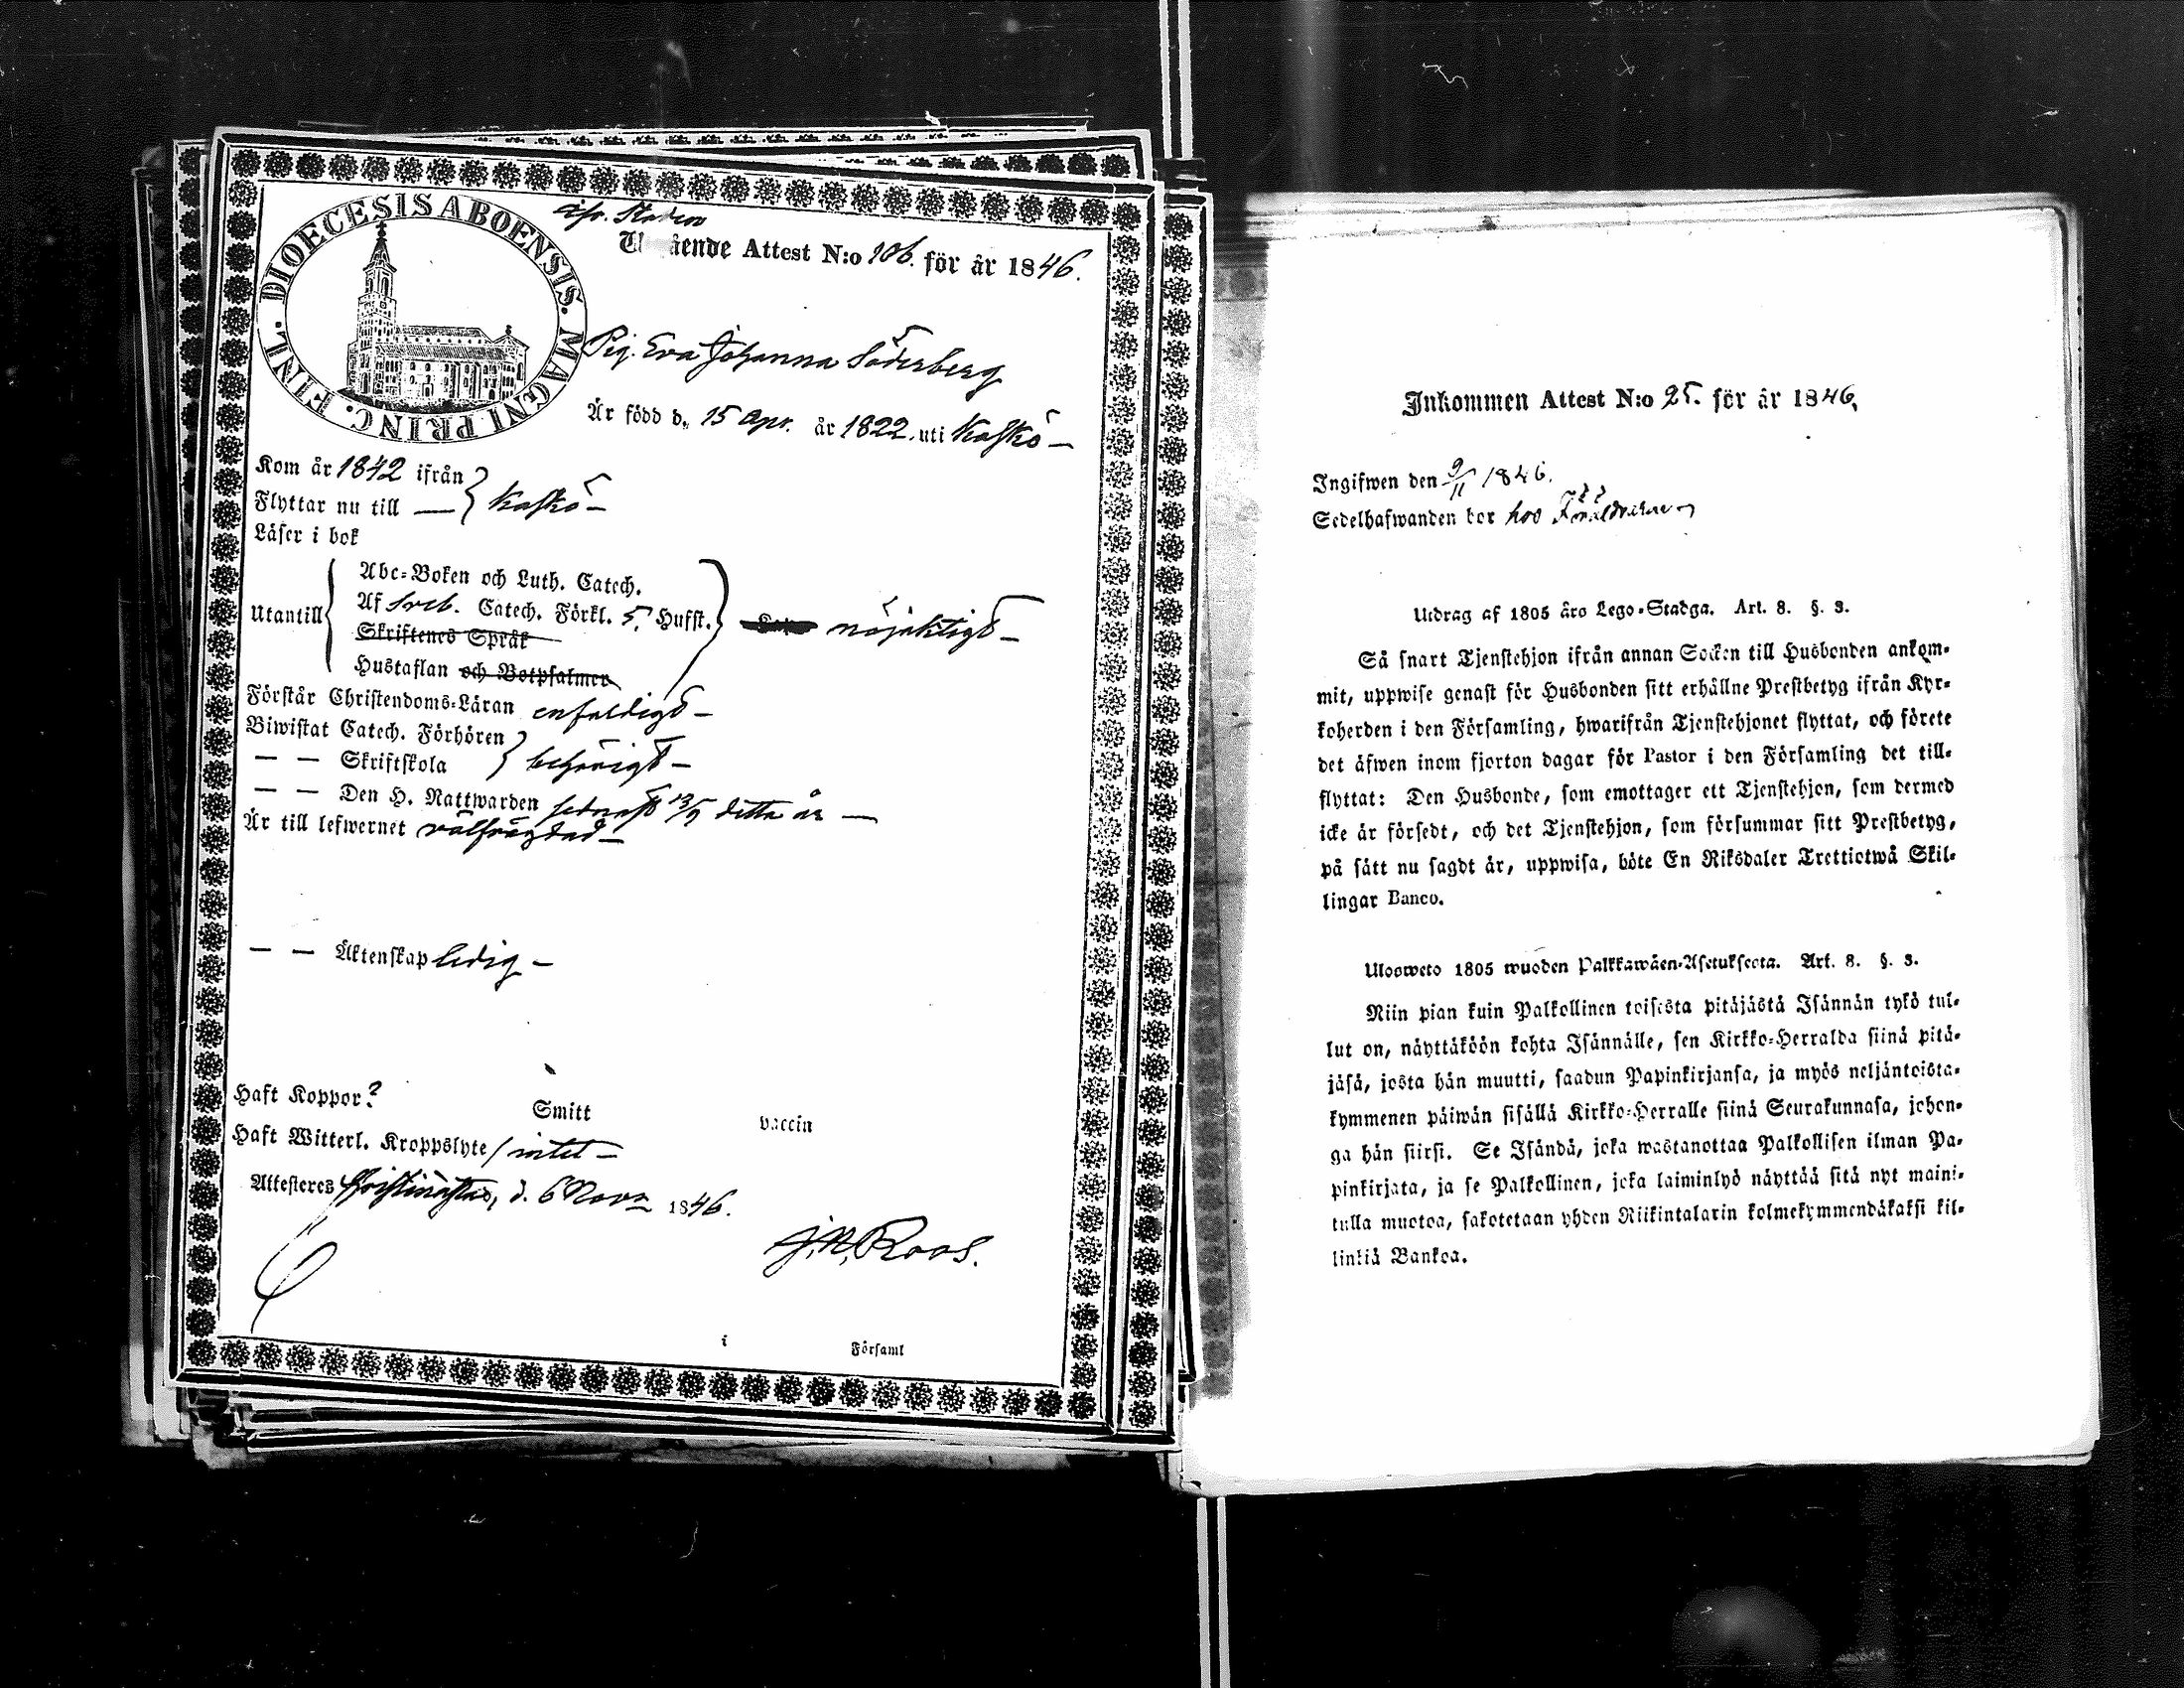 DIOECESIS ABOENSIS. MAGNI PRINC. FINL.
ifr. Staden
U ående Attest N:o 106. för år 1846.
Pig. Eva Johanna Söderberg
Är född d. 15 Apr. år 1822. uti Kaskö —
Kom år 1842 ifrån
Flyttar nu till — } Kaskö —
Läser i bok
Utantill { Abc-Boken och Luth. Catech.
Af Sveb. Catech. Förkl. 5. Hufst. } nöjaktigt —
Skriftenes Språk
Hustaflan och Botpsalmer
Förstår Christendoms-Läran enfaldigt —
Biwistat Catech. Förhören
— — Skriftskola } behörigt —
— — Den H. Nattwarden sednast 13/9 detta år —
Är till lefwernet välfrägdad —
— — Äktenskap ledig —
Haft Koppor? Smitt vaccin
Haft Witterl. Kroppslyte / intet —
Attesteres Christinestad, d. 6 Novr 1846.
J. N. Roos.
i Församl
Inkommen Attest N:o 25. för år 1846.
Ingifwen den 9/11 1846.
Sedelhafwanden bor hos Föräldrarne
Utdrag af 1805 åro Lego-Stadga. Art. 8. §. 3.
Så snart Tjenstehjon ifrån annan Socken till Husbonden ankom-
mit, uppwise genast för Husbonden sitt erhållne Prestbetyg ifrån Kyr-
koherden i den Församling, hwarifrån Tjenstehjonet flyttat, och förete
det äfwen inom fjorton dagar för Pastor i den Församling det till-
flyttat: Den Husbonde, som emottager ett Tjenstehjon, som dermed
icke är försedt, och det Tjenstehjon, som försummar sitt Prestbetyg,
på sätt nu sagdt är, uppwisa, böte En Riksdaler Trettiotwå Skil-
lingar Banco.
Ulosweto 1805 wuoden Palkkawäen-Asetuksesta. Art. 8. §. 3.
Niin pian kuin Palkollinen toisesta pitäjästä Isännän tykö tul-
lut on, näyttäköön kohta Isännälle, sen Kirkko-Herralda siinä pitä-
jäsä, josta hän muutti, saadun Papinkirjansa, ja myös neljäntoista-
kymmenen päiwän sisällä Kirkko-Herralle siinä Seurakunnasa, johon-
ga hän siirsi. Se Isändä, joka wastanottaa Palkollisen ilman Pa-
pinkirjata, ja se Palkollinen, joka laiminlyö näyttää sitä nyt maini-
tulla muotoa, sakotetaan yhden Riikintalarin kolmekymmendäkaksi kil-
linkiä Bankoa.